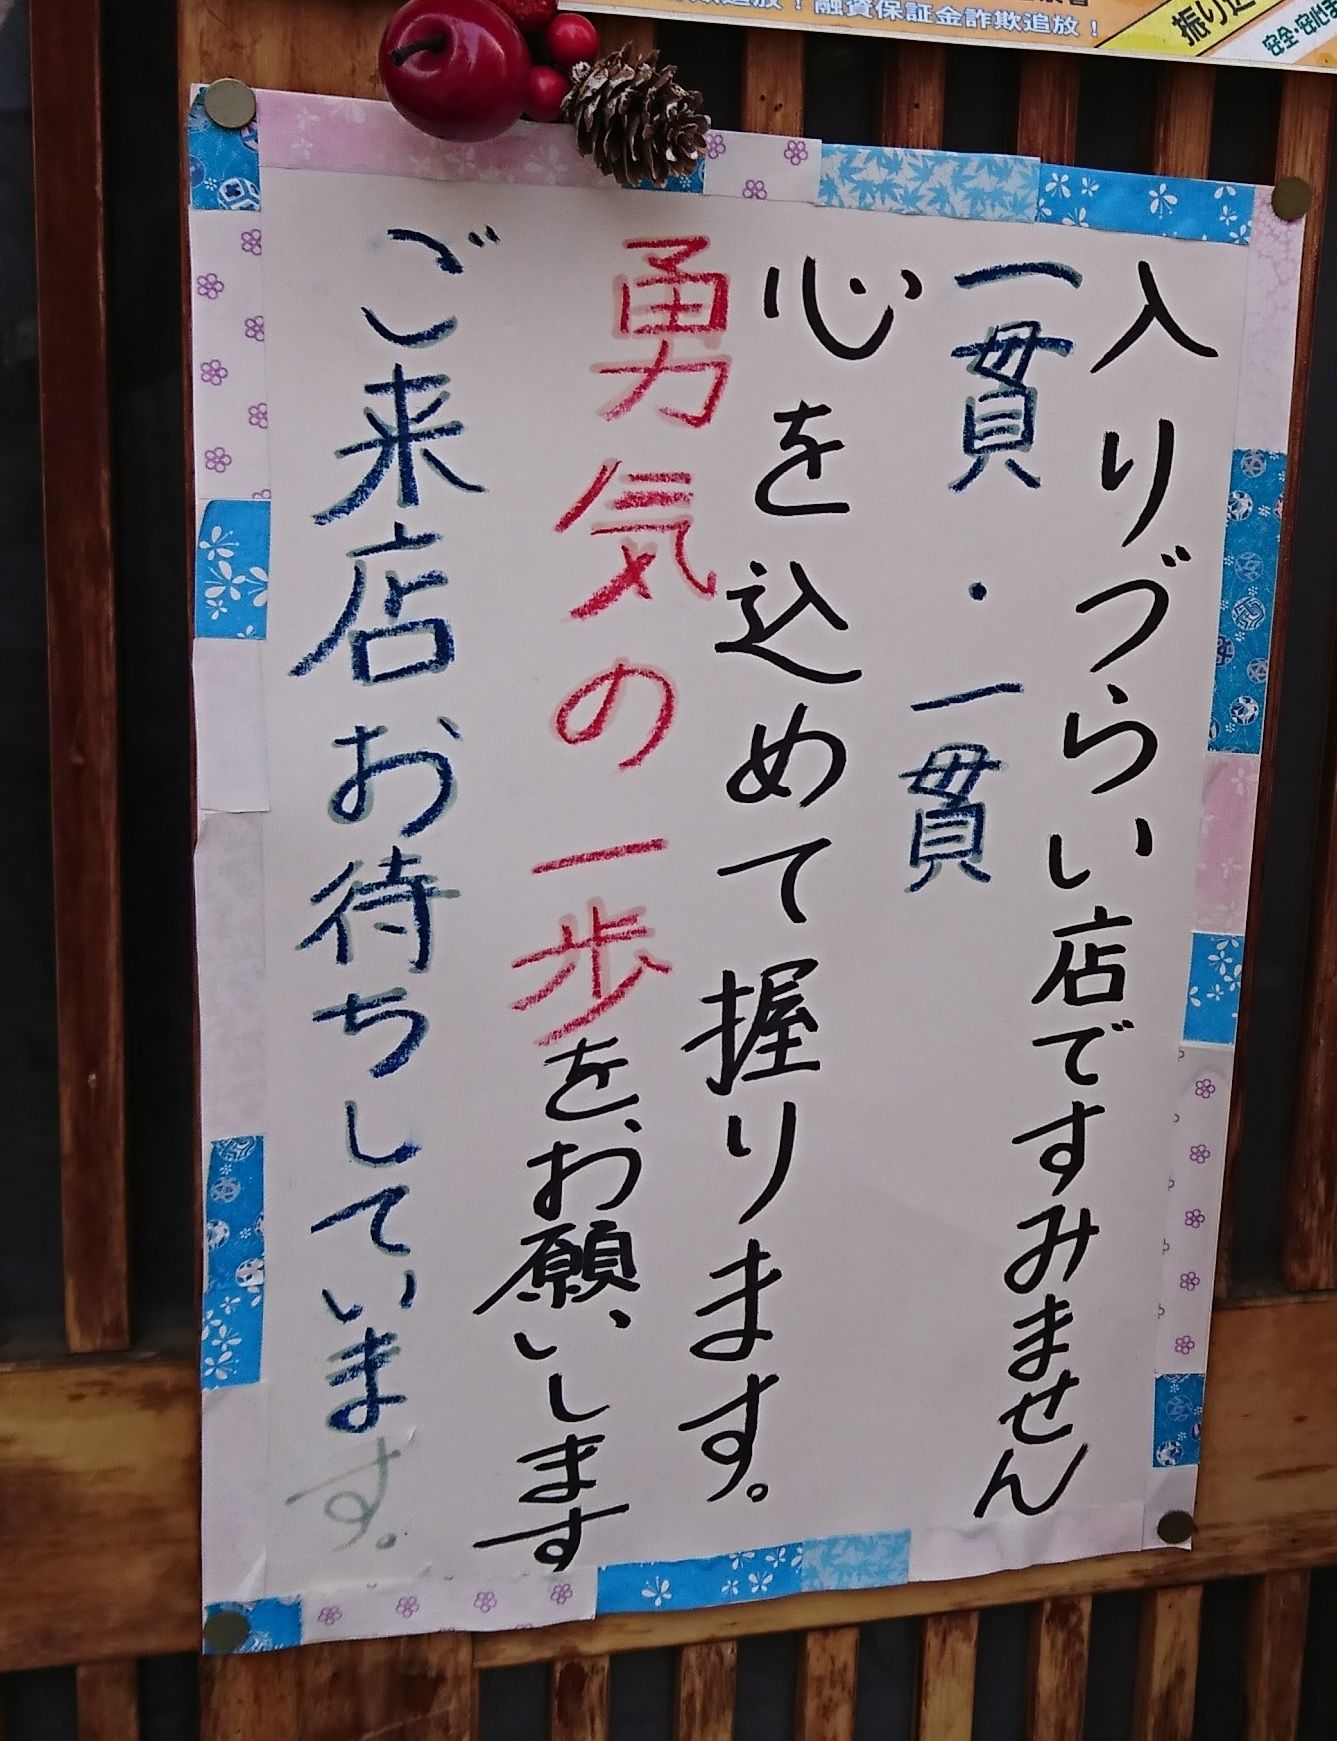 入りづらい店ですみません
一貫・一貫
心を込めて握ります。
勇気の一歩を、お願いします
ご来店お待ちしています。
追放!融資保証金詐欺追放!
振り込
安全・安心ま